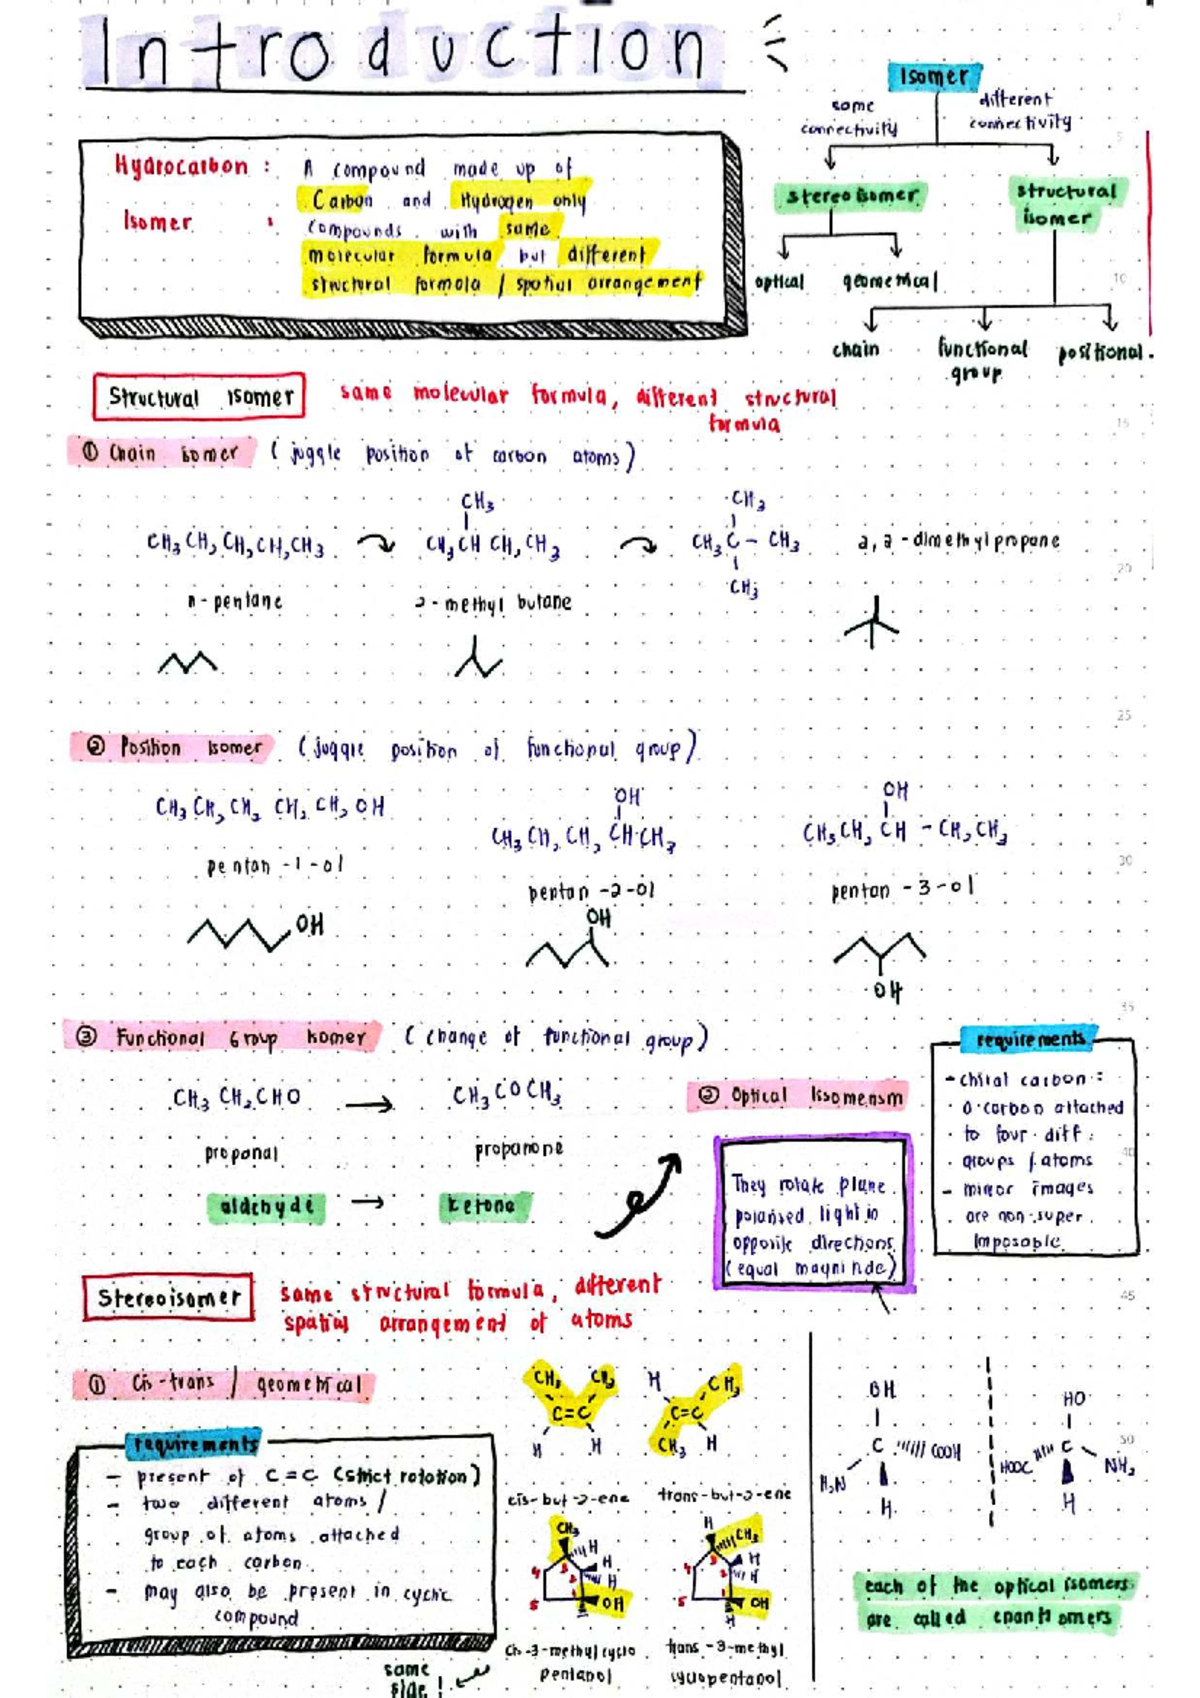 Introduction
Isomer
same connectivity
different connectivity
stereoisomer
structural isomer
optical
geometrical
chain
functional group
positional
Hydrocarbon : A compound made up of
Carbon and Hydrogen only
Isomer : compounds with same
molecular formula but different
structural formula / spatial arrangement
Structural Isomer
same molecular formula, different structural
formula
① Chain isomer (juggle position of carbon atoms)
CH₃
CH₃
CH₃CH₂CH₂CH₂CH₃
CH₃CH CH₂CH₃
CH₃C - CH₃
2,2-dimethylpropane
CH₃
n-pentane
2-methyl butane
② Position Isomer (juggle position of functional group)
OH
OH
CH₃CH₂CH₂CH₂CH₂OH
CH₃CH₂CH₂CHCH₃
CH₃CH₂CH - CH₂CH₃
pentan-1-ol
pentan-2-ol
pentan-3-ol
OH
OH
OH
③ Functional Group Isomer (change of functional group)
CH₃CH₂CHO → CH₃COCH₃
propanal
propanone
aldehyde → ketone
② Optical Isomerism
requirements
- chiral carbon :
a carbon attached
to four diff.
groups / atoms
- mirror images
are non-super
imposable
They rotate plane
polarised light in
opposite directions
(equal magnitude)
Stereoisomer
same structural formula, different
spatial arrangement of atoms
① Cis-trans / geometrical
requirements
- present of C=C (strict rotation)
- two different atoms /
group of atoms attached
to each carbon
- may also be present in cyclic
compound
same
side!
CH₃ CH₃
C=C
H H
H CH₃
C=C
CH₃ H
cis-but-2-ene
trans-but-2-ene
CH₃
H
H
H
OH
H
4
3
2
1
5
H
CH₃
H
H
OH
H
4
3
2
1
5
Cis-3-methylcyclo
pentanol
trans-3-methyl
cyclopentanol
OH
C
COOH
H₂N
H
HO
HOOC
C
NH₂
H
each of the optical isomers
are called enantiomers
5
10
15
20
25
30
35
40
45
50